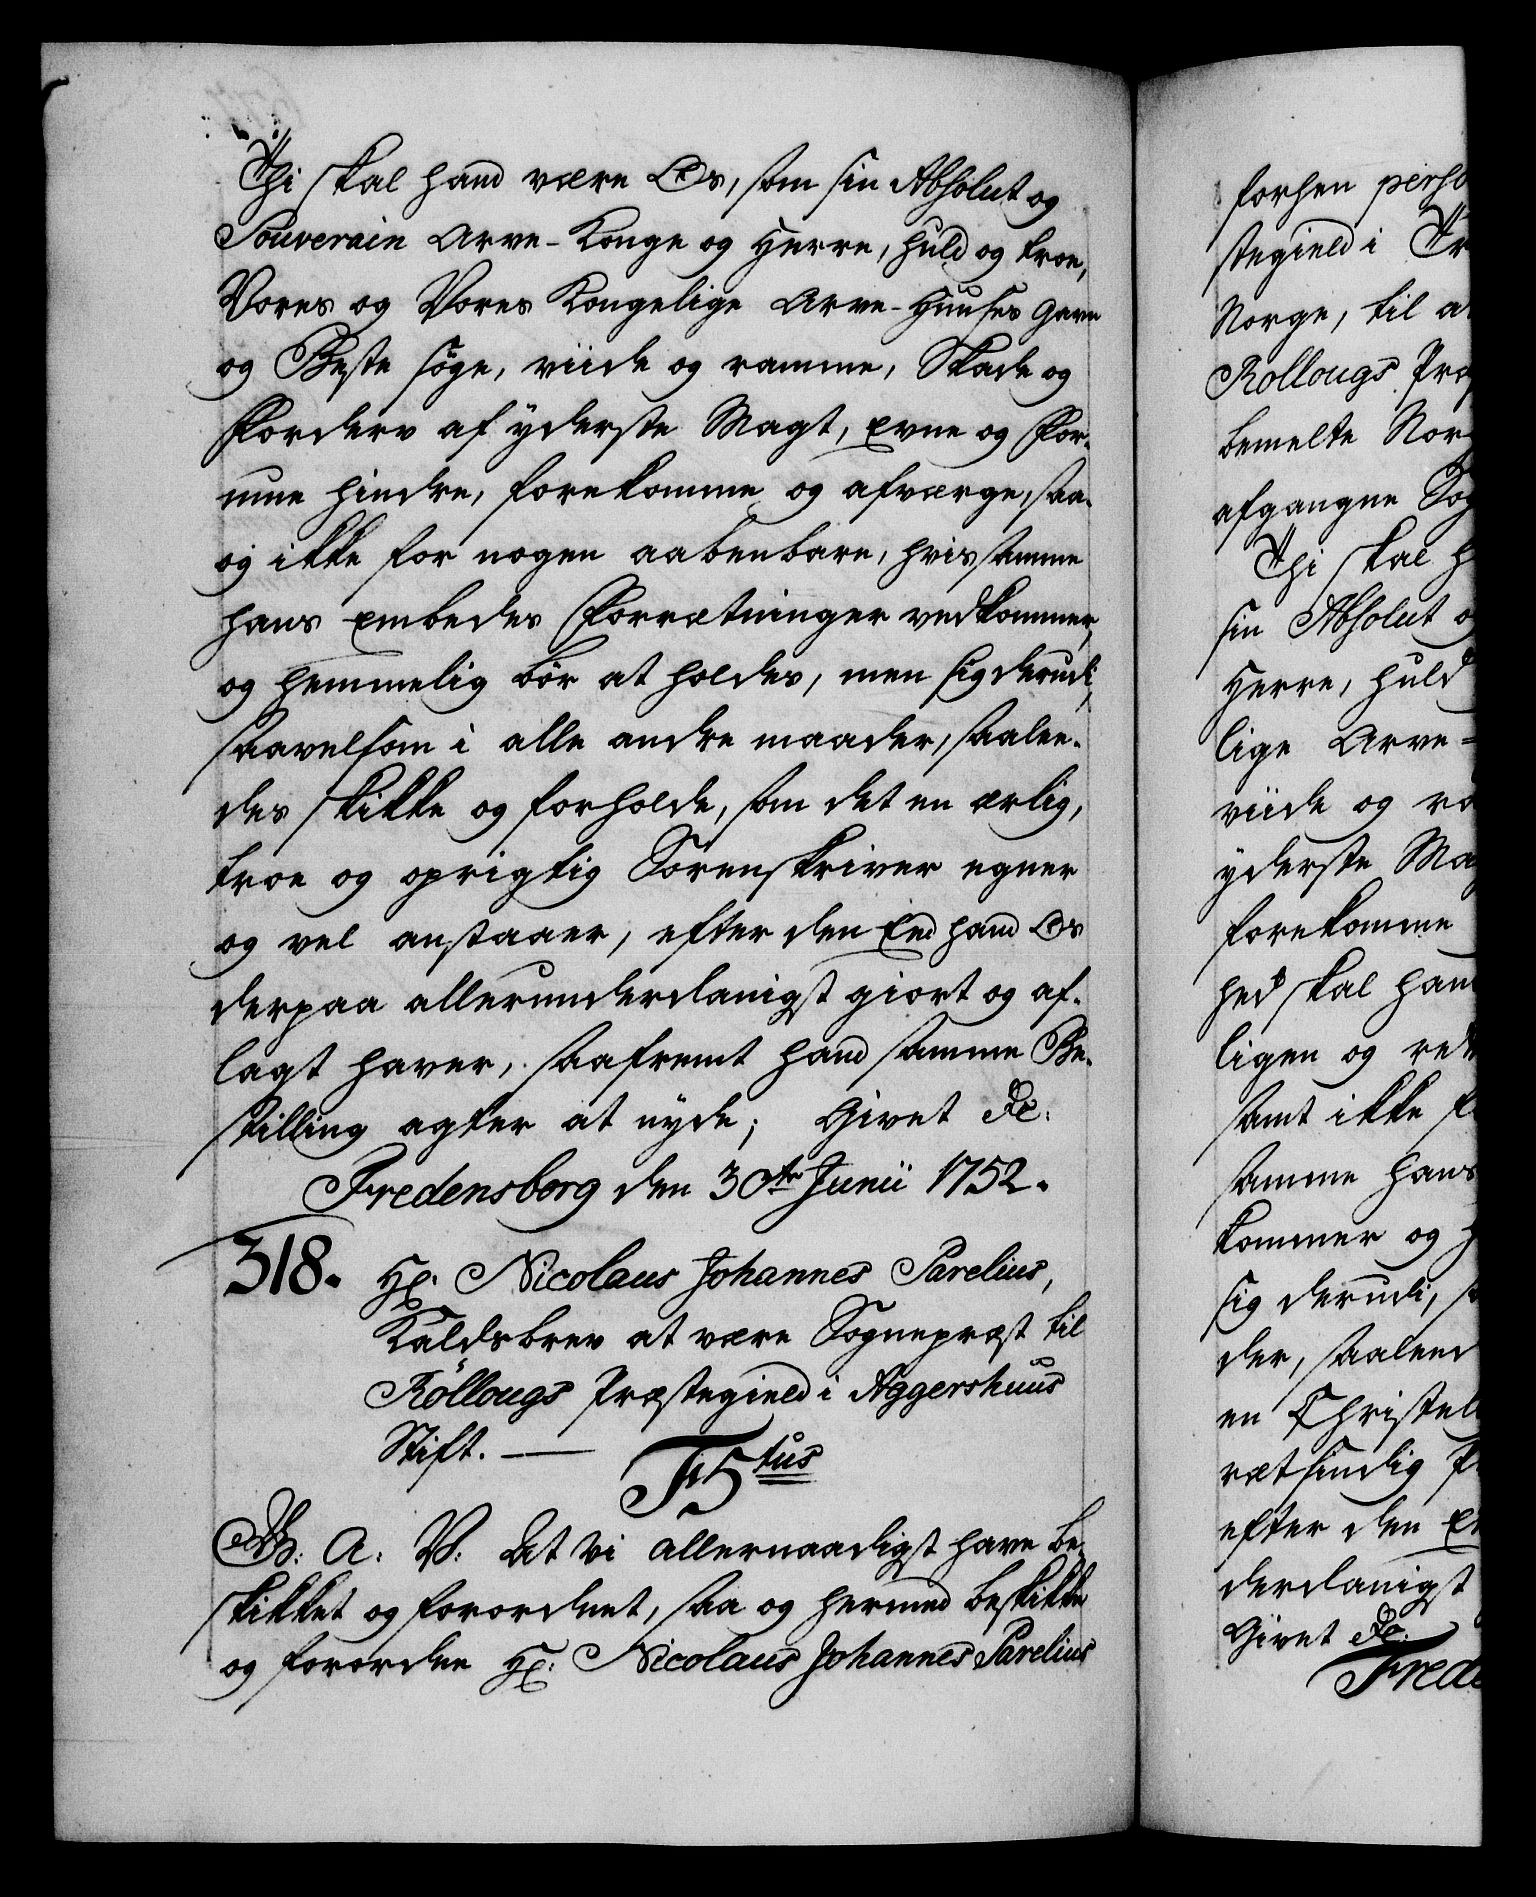 Thi skal hand være Os, som sin Absolut og
Souverain Arve-Konge og Herre, huld og troe,
Vores og Vores Kongelige Arve-Huuses gavn
og Beste søge, viide og ramme, Skade og
Forderv af yderste Magt, Evne og For-
mue hindre, forekomme og afværge, saa-
og ikke for nogen aabenbare, hvis samme
hans Embedes Forrætninger vedkommer,
og hemmelig bør at holdes, men sig derudi,
saavelsom i alle andre maader, saalee-
des skikke og forholde, som det en ærlig,
troe og oprigtig Sorenskriver egner
og vel anstaaer, efter den Eed hand Os
derpaa allerunderdanigst giort og af-
lagt haver, saafremt hand samme Be-
stilling agter at nyde; Givet &c:
Fredensborg den 30te Junii 1752.
318. Hr: Nicolaus Johannes Parelius,
Kaldsbrev at være Sognepræst til
Röllougs Præstegield i Aggershuus
Stift. — F5tus
G: A: V: At Vi allernaadigst have be-
skikket og forordnet, saa og hermed beskikke
og forordne Hr: Nicolaus Johannes Parelius
forhen perso
stegield i Tr
Norge, til a
Rollougs Præ
bemelte Nor
afgangne Sog
Thi skal h
sin Absolut o
Herre, huld
lige Arve-
viide og ra
yderste Mag
forekomme
hed skal han
ligen og ret
samt ikke f
samme hans
kommer og h
sig derudi, s
der, saaleed
en Christel
rætsindig P
efter den E
derdanigst
Givet &c:
Frede